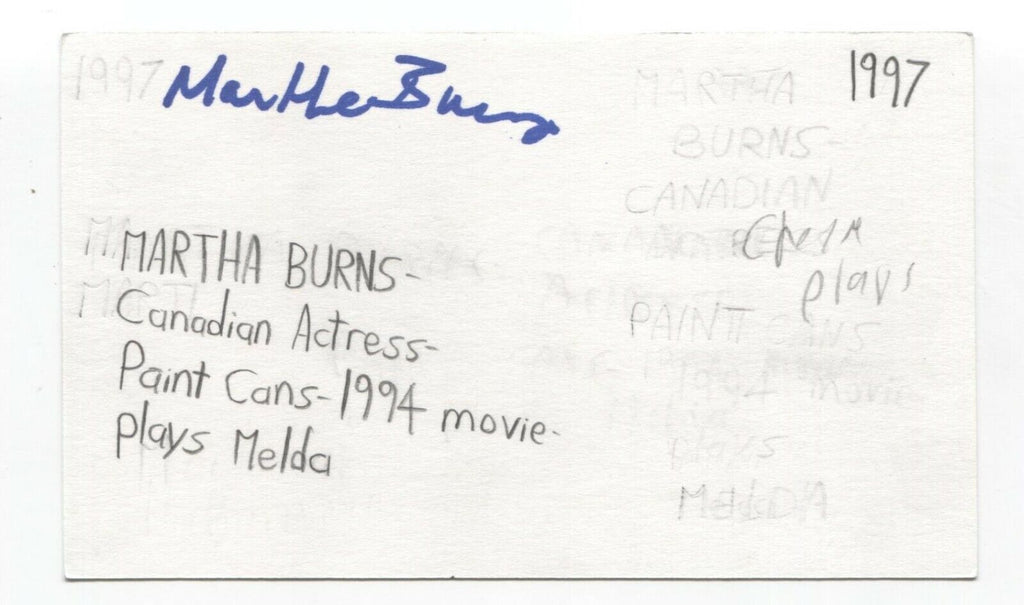 1997 Martha Burns 1997
MARTHA BURNS-
Canadian Actress-
Paint Cans-1994 movie-
plays Melda
MARTHA
BURNS-
CANADIAN
plays
PAINT CANS
1994 movie
plays
MELDA